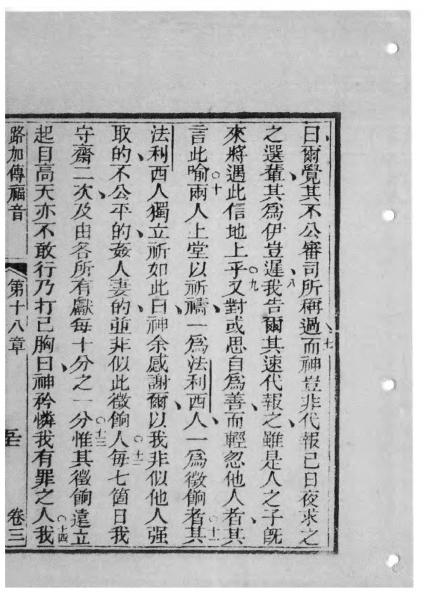 曰爾覺其不公審司所稱過而神豈非代報已日夜求之
之選軰其為伊豈遲我告爾其速代報之雖是人之子旣
來將遇此信地上乎又對或思自為善而輕忽他人者其
言此喻兩人上堂以祈禱一為法利西人一為徵餉者其
法利西人獨立祈如此曰神余感謝爾以我非似他人强
取的不公平的姦人妻的並非似此徵餉人每七箇日我
守齋二次及由各所有獻每十分之一分惟其徵餉遠立
起目高天亦不敢行乃打己胸曰神矜憐我有罪之人我
路加傳福音 第十八章 卷三